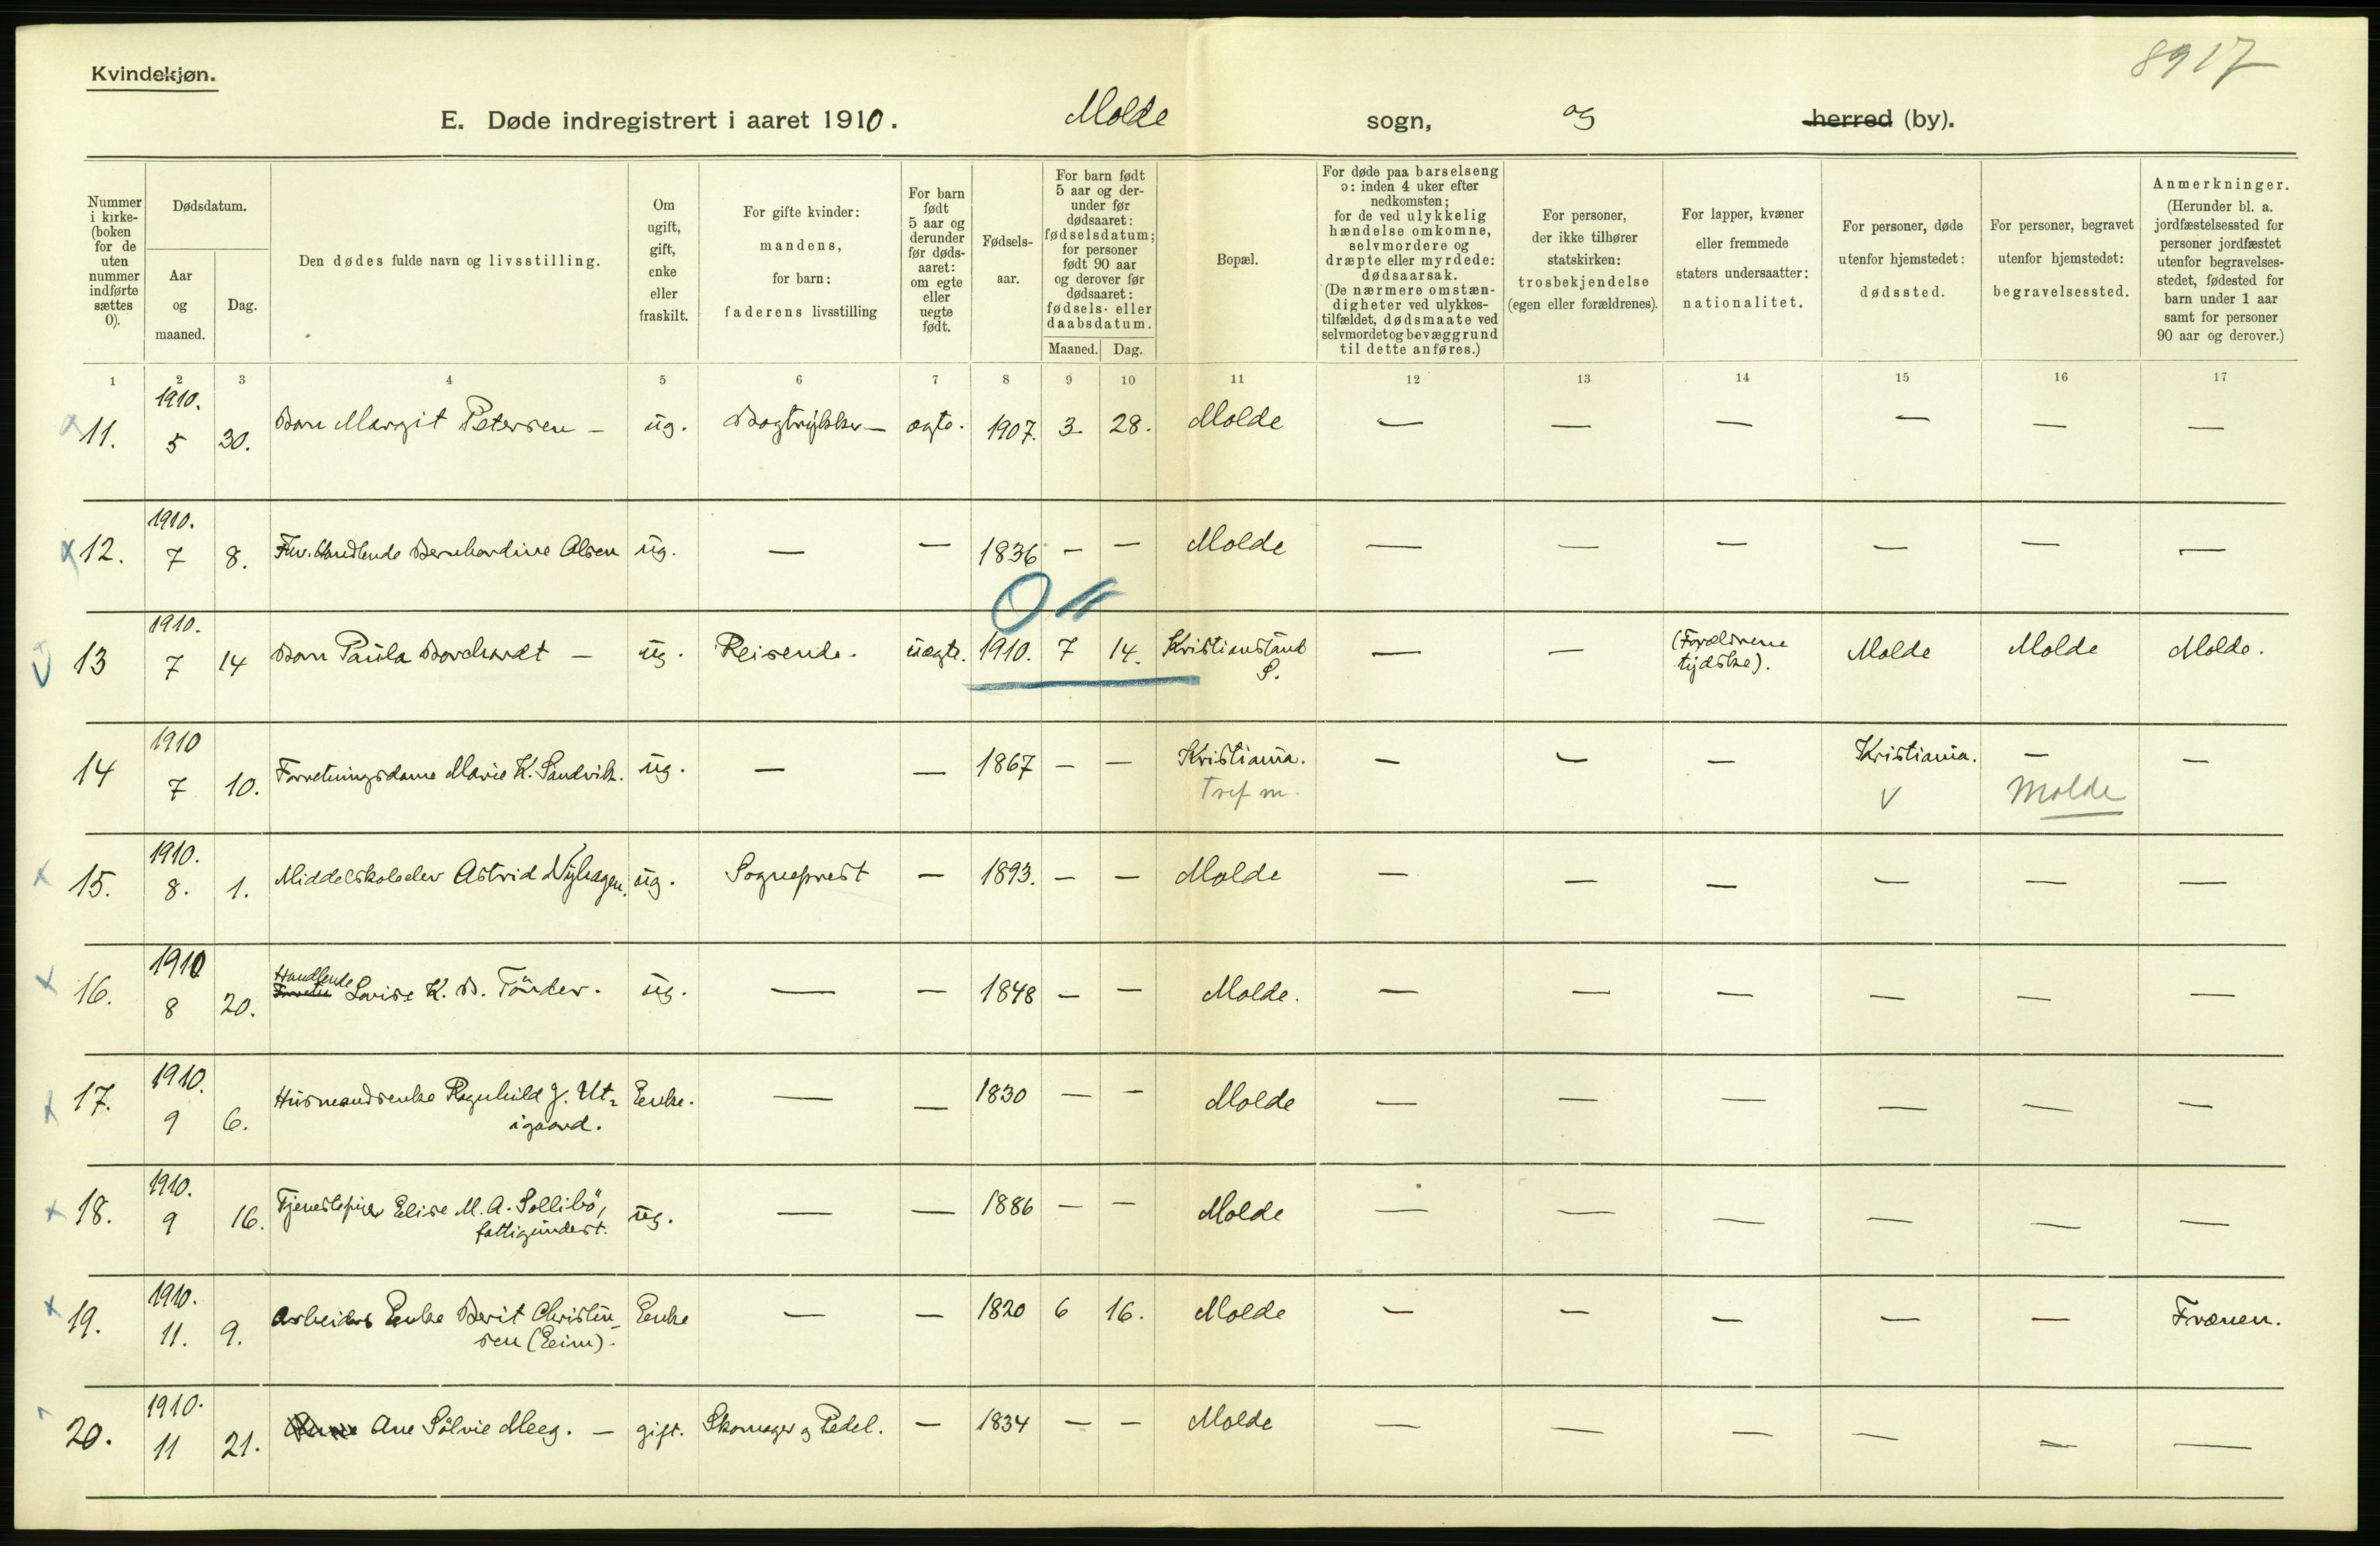 8917
Kvindekjøn.
E. Døde indregistrert i aaret 1910. Molde sogn, og herred (by).
Nummer i kirke- (boken for de uten nummer indførte sættes 0).
Dødsdatum.
Aar og maaned.
Dag.
Den dødes fulde navn og livsstilling.
Om ugift, gift, enke eller fraskilt.
For gifte kvinder: mandens, for barn: faderens livsstilling
For barn født 5 aar og derunder før døds- aaret: om egte eller uegte født.
Fødsels- aar.
For barn født 5 aar og der- under før dødsaaret: fødselsdatum; for personer født 90 aar og derover før dødsaaret: fødsels- eller daabsdatum.
Maaned. Dag.
Bopæl.
For døde paa barselseng ɔ: inden 4 uker efter nedkomsten; for de ved ulykkelig hændelse omkomne, selvmordere og dræpte eller myrdede: dødsaarsak. (De nærmere omstæn- digheter ved ulykkes- tilfældet, dødsmaate ved selvmordet og bevæggrund til dette anføres.)
For personer, der ikke tilhører statskirken: trosbekjendelse (egen eller forældrenes).
For lapper, kvæner eller fremmede staters undersaatter: nationalitet.
For personer, døde utenfor hjemstedet: dødssted.
For personer, begravet utenfor hjemstedet: begravelsessted.
Anmerkninger. (Herunder bl. a. jordfæstelsessted for personer jordfæstet utenfor begravelses- stedet, fødested for barn under 1 aar samt for personer 90 aar og derover.)
1 2 3 4 5 6 7 8 9 10 11 12 13 14 15 16 17
11. 1910. 5 30. Barn Margit Petersen – ug. Bogtrykker – ægte. 1907. 3. 28. Molde — — — — — —
12. 1910. 7 8. Fhv. Handlende Bernhardine Alsen ug. — — 1836 – – Molde — — — — — —
13 1910. 7 14 Barn Paula Borchardt – ug. Reisende. uægte. 1910. 7 14. Kristiansund S. — — (Forældrene tydske). Molde Molde Molde.
14 1910 7 10. Forretningsdame Marie K. Sandvik. ug. — — 1867 – – Kristiania. — — — Kristiania. — —
V Molde
15. 1910. 8. 1. Middelskoleelev Astrid Nyhagen. ug. Sogneprest — 1893. – – Molde — — — — — —
16. 1910 8 20. Handlende Lovise K. B. Tönder. ug. — — 1848 – – Molde. — — — — — —
17. 1910. 9 6. Husmandsenke Ragnhild J. Ut- igaard. Enke. — — 1830 – – Molde — — — — — —
18. 1910. 9 16. Tjenestepige Elise M. A. Sollibö, fattigunderst. ug. — — 1886 – – Molde — — — — — —
19. 1910. 11. 9. Arbeiders Enke Berit Christen- sen (Eeim). Enke — — 1820 6 16. Molde — — — — — Frænen.
20. 1910. 11 21. Ane Sölvie Meeg. – gift. Skomager og Pedel. — 1834 – – Molde — — — — — —